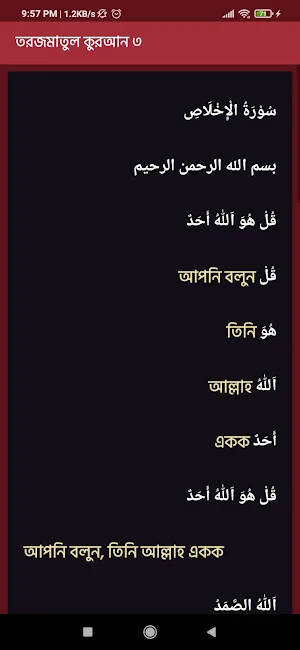 9:57 PM | 1.2KB/s
71
তরজমাতুল কুরআন ৩
سُوْرَةُ الْإِخْلَاصِ
بسم الله الرحمن الرحيم
قُلْ هُوَ اَللهُ أَحَدٌ
قُلْ আপনি বলুন
هُوَ তিনি
اَللهُ আল্লাহ
أَحَدٌ একক
قُلْ هُوَ اَللهُ أَحَدٌ
আপনি বলুন, তিনি আল্লাহ একক
اَللهُ الصَّمَدُ